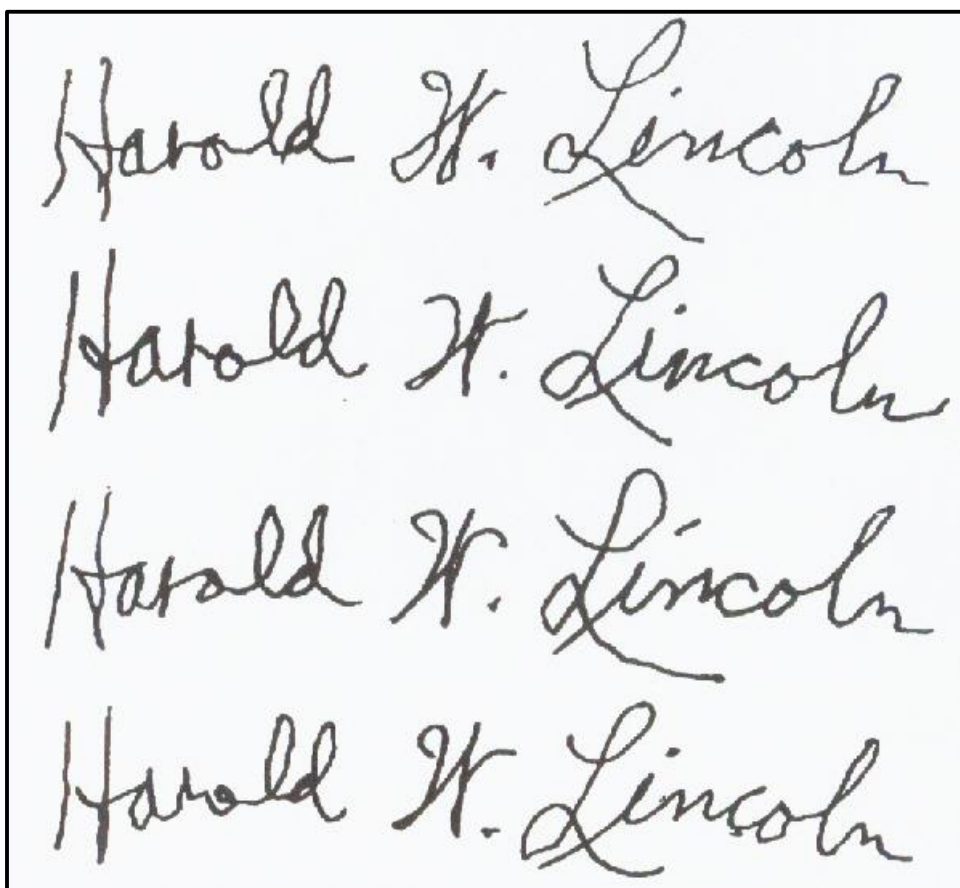 Harold W. Lincoln
Harold W. Lincoln
Harold W. Lincoln
Harold W. Lincoln